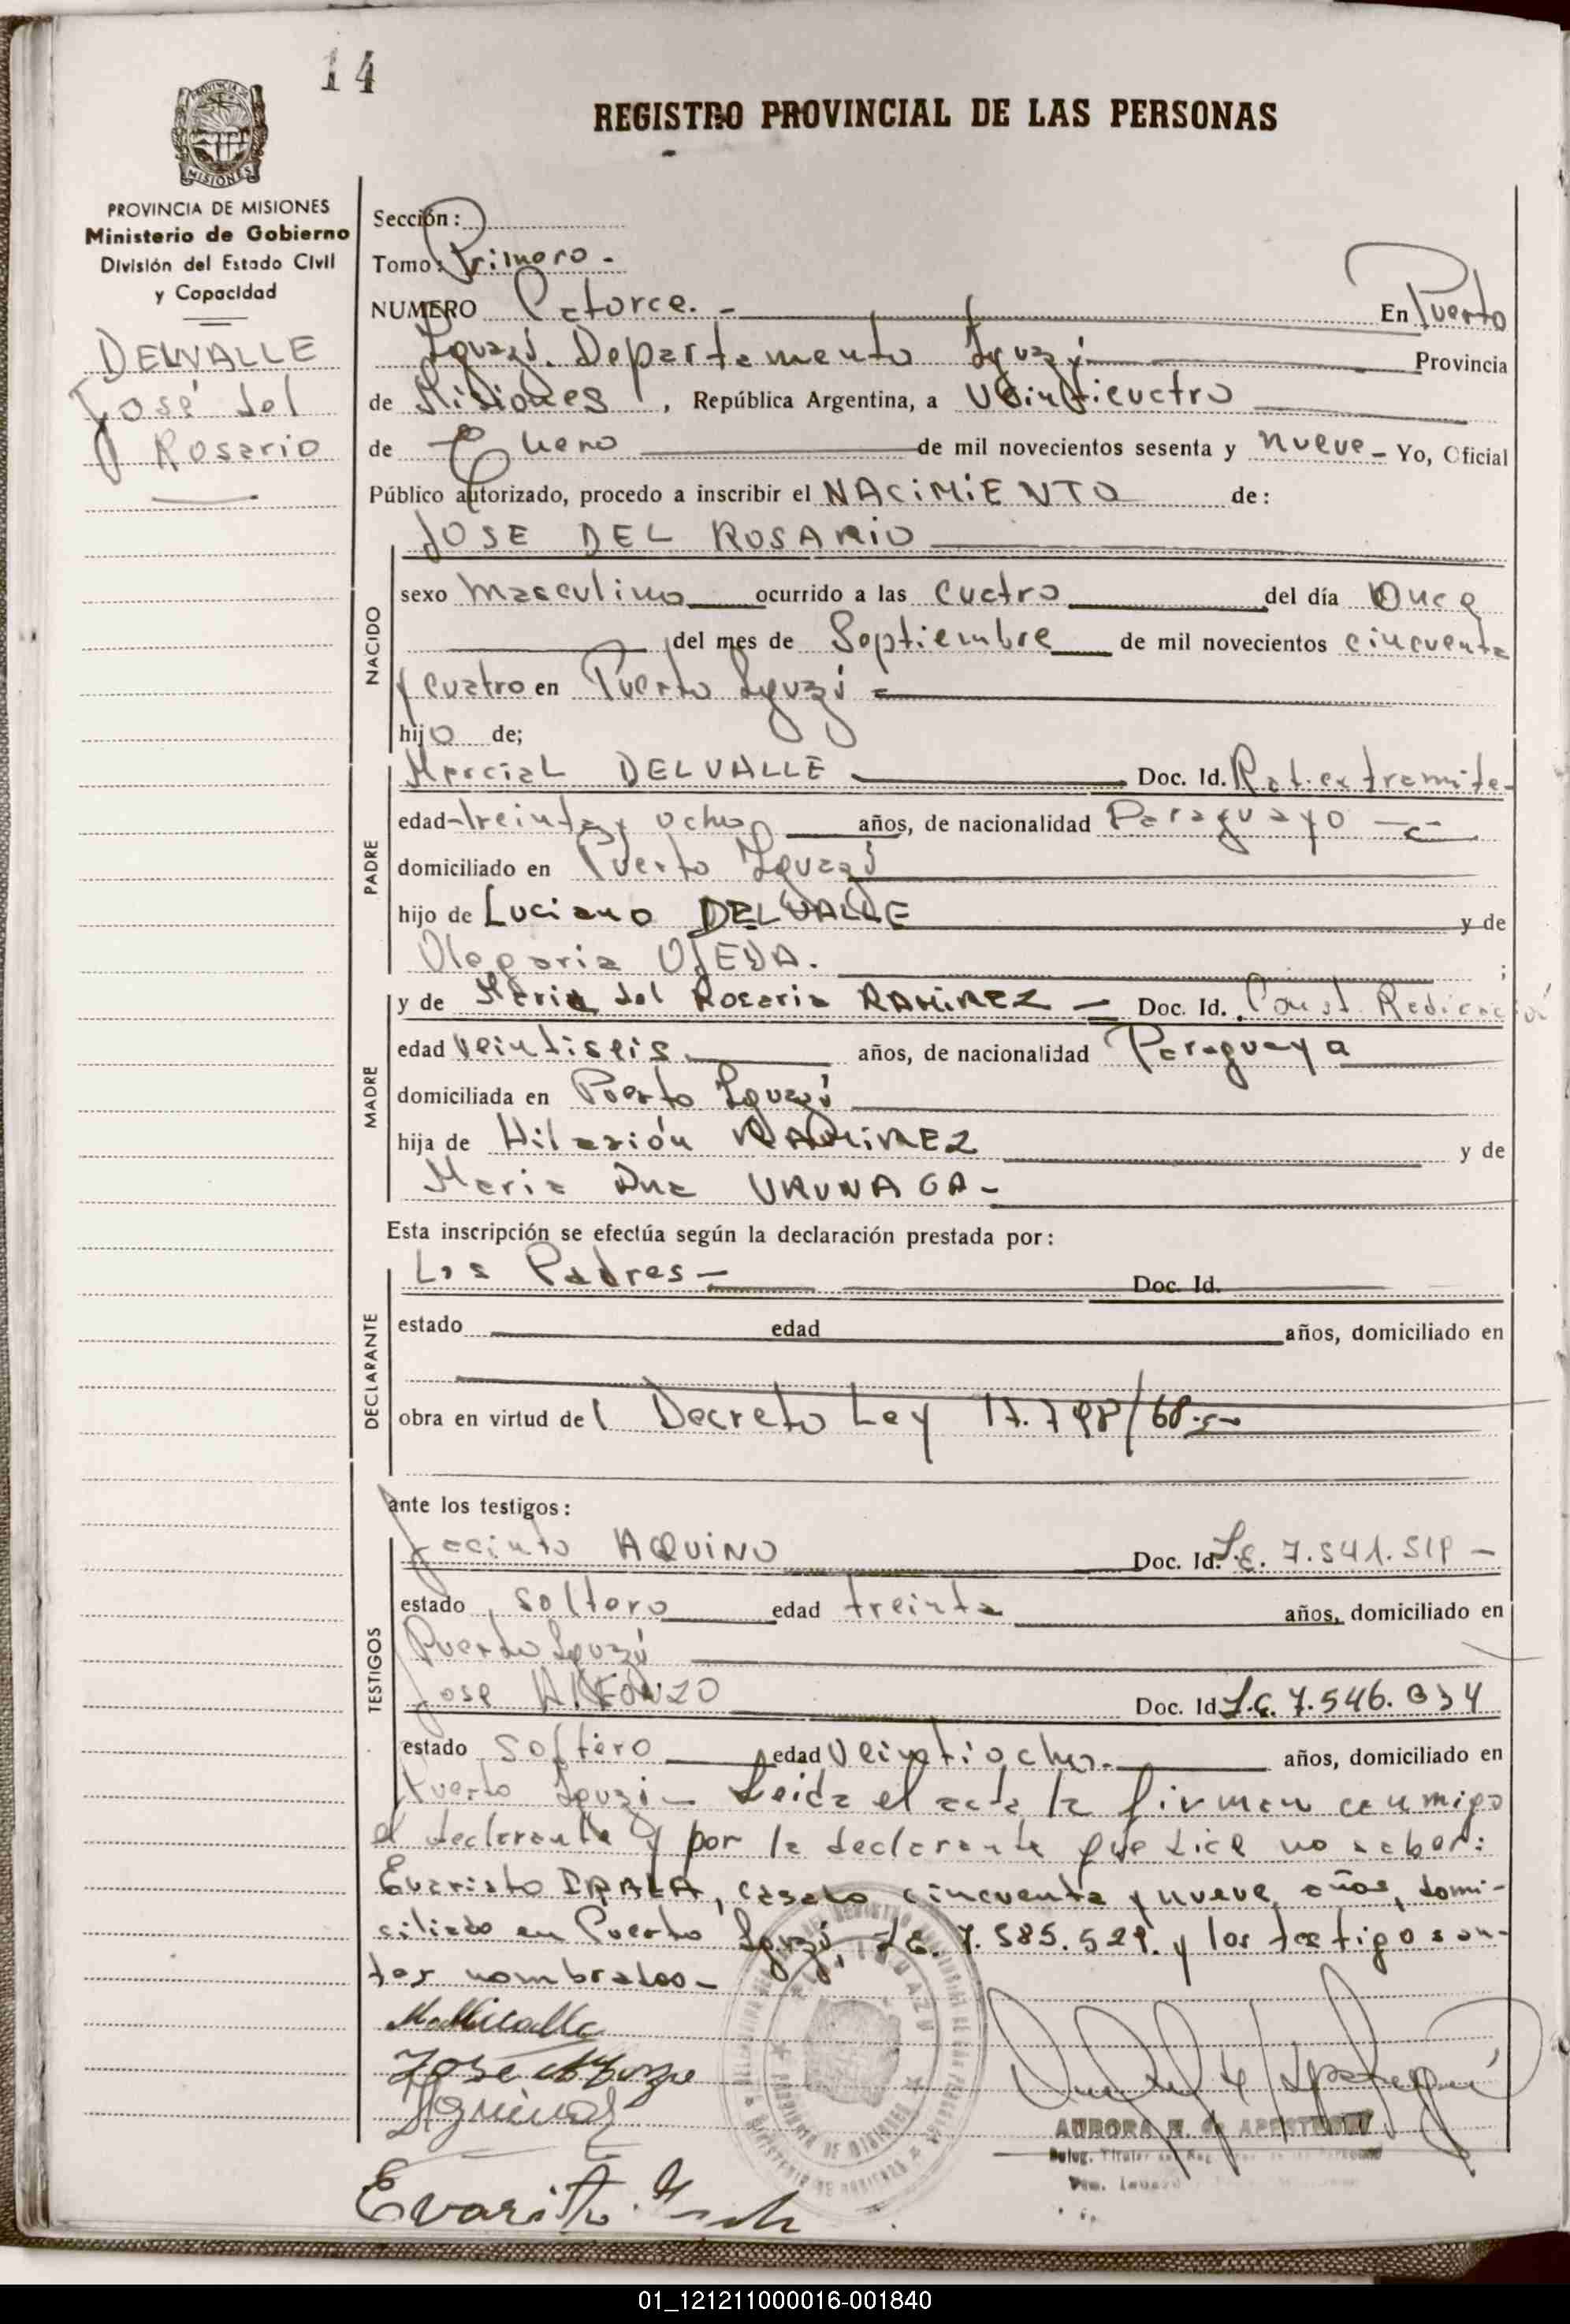 14
REGISTRO PROVINCIAL DE LAS PERSONAS
PROVINCIA DE
MISIONES
PROVINCIA DE MISIONES
Ministerio de Gobierno
División del Estado Civil
y Capacidad
DELVALLE
José del
Rosario
Sección:
Tomo: Primero.-
NUMERO Catorce.- En Puerto
Iguazú. Departamento Iguazú Provincia
de Misiones, República Argentina, a Veinticuatro
de Enero de mil novecientos sesenta y nueve- Yo, Oficial
Público autorizado, procedo a inscribir el NACIMIENTO de:
JOSE DEL ROSARIO
NACIDO
sexo masculino ocurrido a las cuatro del día Once
del mes de Septiembre de mil novecientos cincuenta
y cuatro en Puerto Iguazú
hijo de;
PADRE
Marcial DELVALLE Doc. Id. Rat. en tramite-
edad treinta y ocho años, de nacionalidad Paraguayo
domiciliado en Puerto Iguazú
hijo de Luciano DELVALLE y de
Olegaria OJEDA. ;
MADRE
y de Maria del Rosario RAMIREZ - Doc. Id. Const. Radicación
edad veintiseis. años, de nacionalidad Paraguaya
domiciliada en Puerto Iguazú
hija de Hilarión RAMIREZ y de
Maria Ana URUNAGA-
Esta inscripción se efectúa según la declaración prestada por:
DECLARANTE
Los Padres- Doc. Id.
estado edad años, domiciliado en
obra en virtud del Decreto Ley 17.798/68.-
ante los testigos:
TESTIGOS
Jacinto AQUINO Doc. Id. L.E. 7.541.519-
estado soltero edad treinta años, domiciliado en
Puerto Iguazú
Jose ALFONZO Doc. Id L.E. 7.546.834
estado soltero edad Veintiocho. años, domiciliado en
Puerto Iguazú- Leida el acta la firman conmigo
el declarante y por la declarante que dice no saber:
Evaristo IRALA, casado cincuenta y nueve años, domi-
ciliado en Puerto Iguazú, L.E. 7.585.529. y los testigos an-
tes nombrados-
Jose Alfonzo
Evaristo
AURORA
01_121211000016-001840